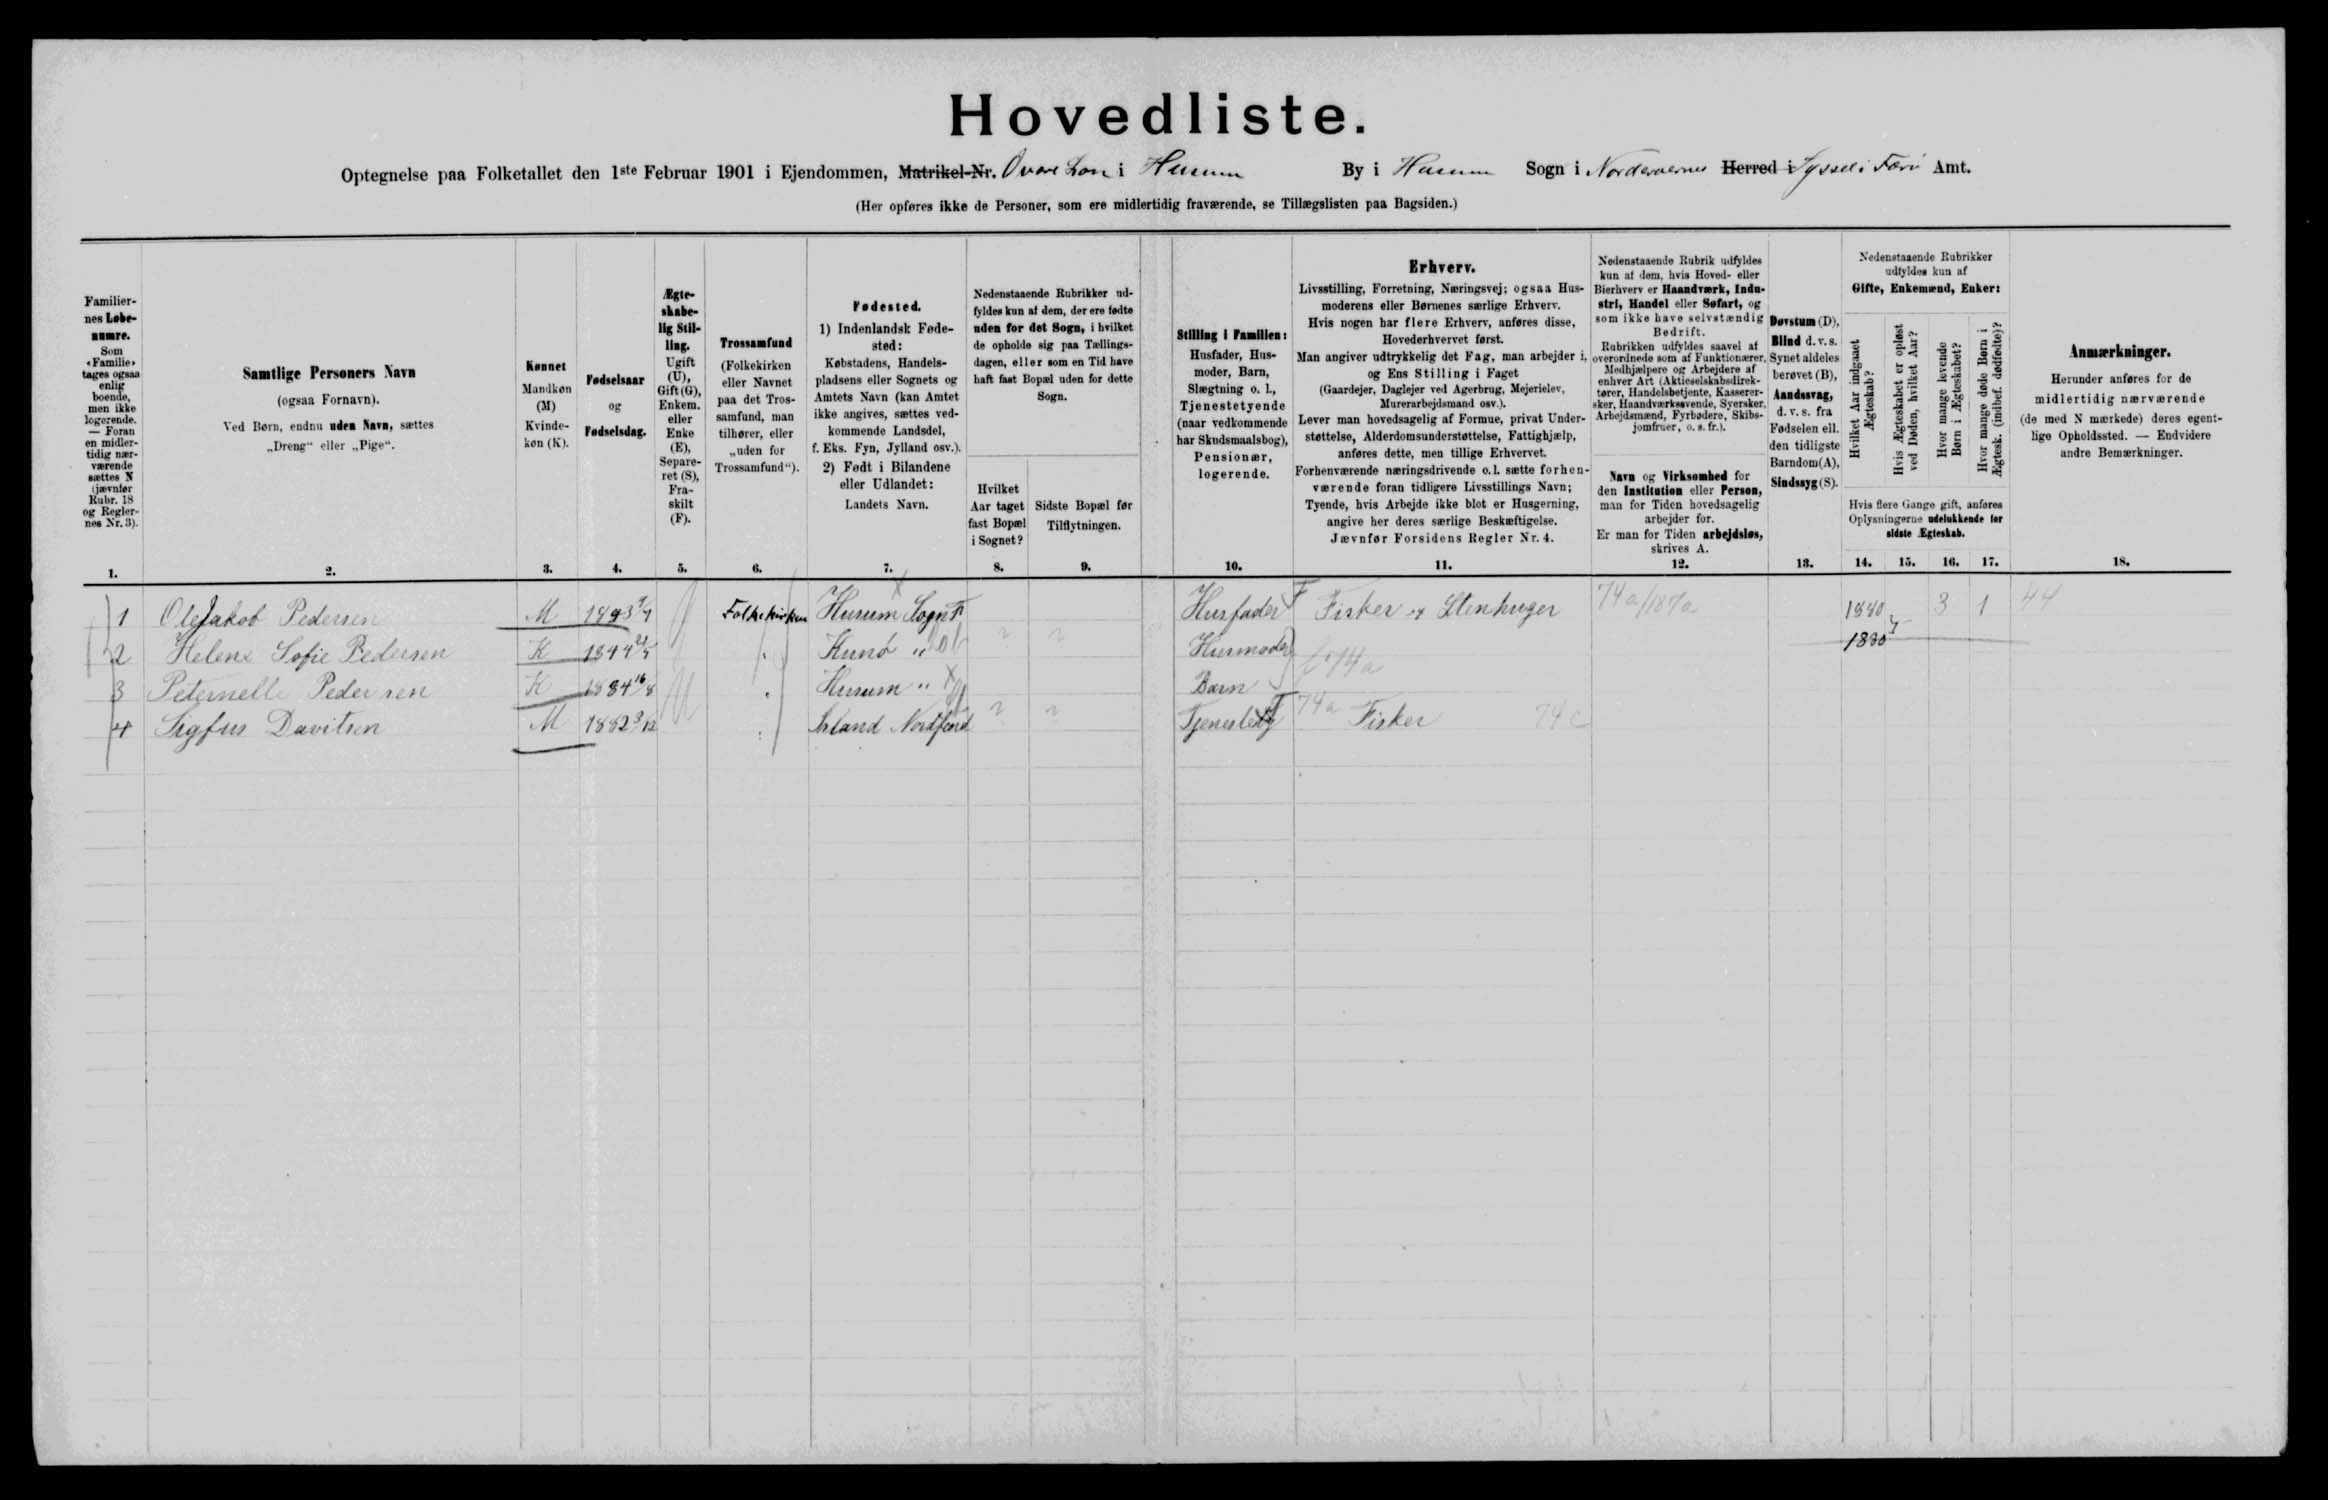 Hovedliste.
Optegnelse paa Folketallet den 1ste Februar 1901 i Ejendommen, Matrikel-Nr. i Husum By i Husum Sogn i Norderøernes Herred i Syssel i Færø Amt.
(Her opføres ikke de Personer, som ere midlertidig fraværende, se Tillægslisten paa Bagsiden.)
Familier-
nes Løbe-
numre.
Som
«Familie»
tages ogsaa
enlig
boende,
men ikke
logerende.
— Foran
en midler-
tidig nær-
værende
sættes N
(jævnfør
Rubr. 18
og Regler-
nes Nr. 3).
1.
Samtlige Personers Navn
(ogsaa Fornavn).
Ved Børn, endnu uden Navn, sættes
„Dreng“ eller „Pige“.
2.
Kønnet
Mandkøn
(M)
Kvinde-
køn (K).
3.
Fødselsaar
og
Fødselsdag.
4.
Ægte-
skabe-
lig Stil-
ling.
Ugift
(U),
Gift (G),
Enkem.
eller
Enke
(E),
Separe-
ret (S),
Fra-
skilt
(F).
5.
Trossamfund
(Folkekirken
eller Navnet
paa det Tros-
samfund, man
tilhører, eller
„uden for
Trossamfund“).
6.
Fødested.
1) Indenlandsk Føde-
sted:
Købstadens, Handels-
pladsens eller Sognets og
Amtets Navn (kan Amtet
ikke angives, sættes ved-
kommende Landsdel,
f. Eks. Fyn, Jylland osv.).
2) Født i Bilandene
eller Udlandet:
Landets Navn.
7.
Nedenstaaende Rubrikker ud-
fyldes kun af dem, der ere fødte
uden for det Sogn, i hvilket
de opholde sig paa Tællings-
dagen, eller som en Tid have
haft fast Bopæl uden for dette
Sogn.
Hvilket
Aar taget
fast Bopæl
i Sognet?
8.
Sidste Bopæl før
Tilflytningen.
9.
Stilling i Familien:
Husfader, Hus-
moder, Barn,
Slægtning o. l.,
Tjenestetyende
(naar vedkommende
har Skudsmaalsbog),
Pensionær,
logerende.
10.
Erhverv.
Livsstilling, Forretning, Næringsvej; ogsaa Hus-
moderens eller Børnenes særlige Erhverv.
Hvis nogen har flere Erhverv, anføres disse,
Hovederhvervet først.
Man angiver udtrykkelig det Fag, man arbejder i,
og Ens Stilling i Faget
(Gaardejer, Daglejer ved Agerbrug, Mejerielev,
Murerarbejdsmand osv.).
Lever man hovedsagelig af Formue, privat Under-
støttelse, Alderdomsunderstøttelse, Fattighjælp,
anføres dette, men tillige Erhvervet.
Forhenværende næringsdrivende o. l. sætte forhen-
værende foran tidligere Livsstillings Navn;
Tyende, hvis Arbejde ikke blot er Husgerning,
angive her deres særlige Beskæftigelse.
Jævnfør Forsidens Regler Nr. 4.
11.
Nedenstaaende Rubrik udfyldes
kun af dem, hvis Hoved- eller
Bierhverv er Haandværk, Indu-
stri, Handel eller Søfart, og
som ikke have selvstændig
Bedrift.
Rubrikken udfyldes saavel af
overordnede som af Funktionærer,
Medhjælpere og Arbejdere af
enhver Art (Aktieselskabsdirek-
tører, Handelsbetjente, Kasserer-
sker, Haandværkssvende, Syersker,
Arbejdsmænd, Fyrbødere, Skibs-
jomfruer, o. s. fr.).
Navn og Virksomhed for
den Institution eller Person,
man for Tiden hovedsagelig
arbejder for.
Er man for Tiden arbejdsløs,
skrives A.
12.
Døvstum (D),
Blind d. v. s.
Synet aldeles
berøvet (B),
Aandssvag,
d. v. s. fra
Fødselen ell.
den tidligste
Barndom (A),
Sindssyg (S).
13.
Nedenstaaende Rubrikker
udfyldes kun af
Gifte, Enkemænd, Enker:
Hvilket Aar indgaaet
Ægteskab?
Hvis Ægteskabet er opløst
ved Døden, hvilket Aar?
Hvor mange levende
Børn i Ægteskabet?
Hvor mange døde Børn i
Ægtesk. (indbef. dødfødte)?
Hvis flere Gange gift, anføres
Oplysningerne udelukkende for
sidste Ægteskab.
14. 15. 16. 17.
Anmærkninger.
Herunder anføres for de
midlertidig nærværende
(de med N mærkede) deres egent-
lige Opholdssted. — Endvidere
andre Bemærkninger.
18.
1 Ole Jakob Pedersen M Folkekirken Husum Sogn Husfader F Fisker og Stenhuger 74a/187a 1880 3 1 44
2 Helene Sofie Pedersen K 1844 Kunø " Husmoder 1880
3 Peternelle Pedersen K 1884 16/8 " Husum " Barn 74a
4 Sigfus Davitsen M 1882 3/12 " Island Nordfjord 74a Fisker 74c